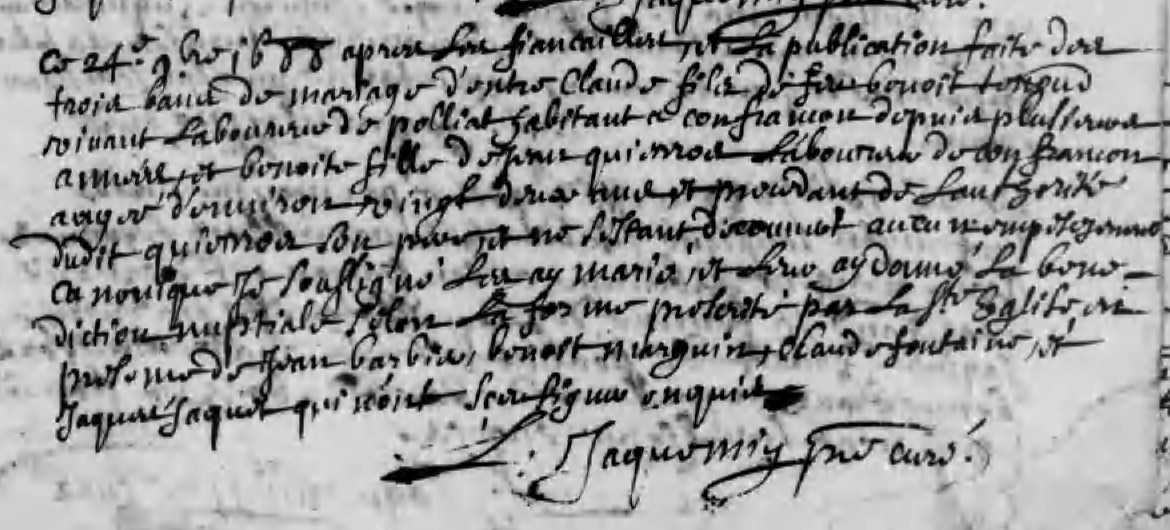 Ce 24e 9bre 1688 apres les fiancailles, et la publication faite des
trois bans de mariage d'entre Claude fils de feu benoit
vivant laboureur de polliat habitant a confrancon depuis plusieurs
années, et benoite fille de Jean quiemos laboureur de confrancon
aagée d'environ vingt deux ans et procedant de l'authorité
dudit quiemos son pere, et ne s'estant decouvert aucun empechement
canonique Je soussigné les ay marié, et leur ay donné la bene-
diction nuptiale selon la forme prescrite par la ste Eglise en
presence de Jean barbier, benoit marguin, Claude fontaine, et
Jaques Jaquet qui n'ont sceu signer enquis
Jaquemin pre curé.